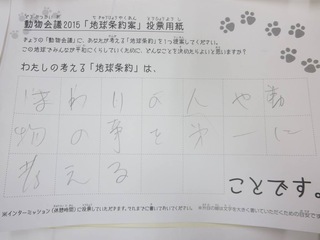 動物会議2015「地球条約案」投票用紙
きょうの「動物会議」に、あなたが考える「地球条約」を1つ提案してください。
この地球でみんなが平和にくらしていくために、どんなことを決めたらよいと思いますか?
わたしの考える「地球条約」は、
まわりの人や動
物の事を第一に
考える
ことです。
※インターミッション(休憩時間)に投票していただきます。それまでに書いておいてください。